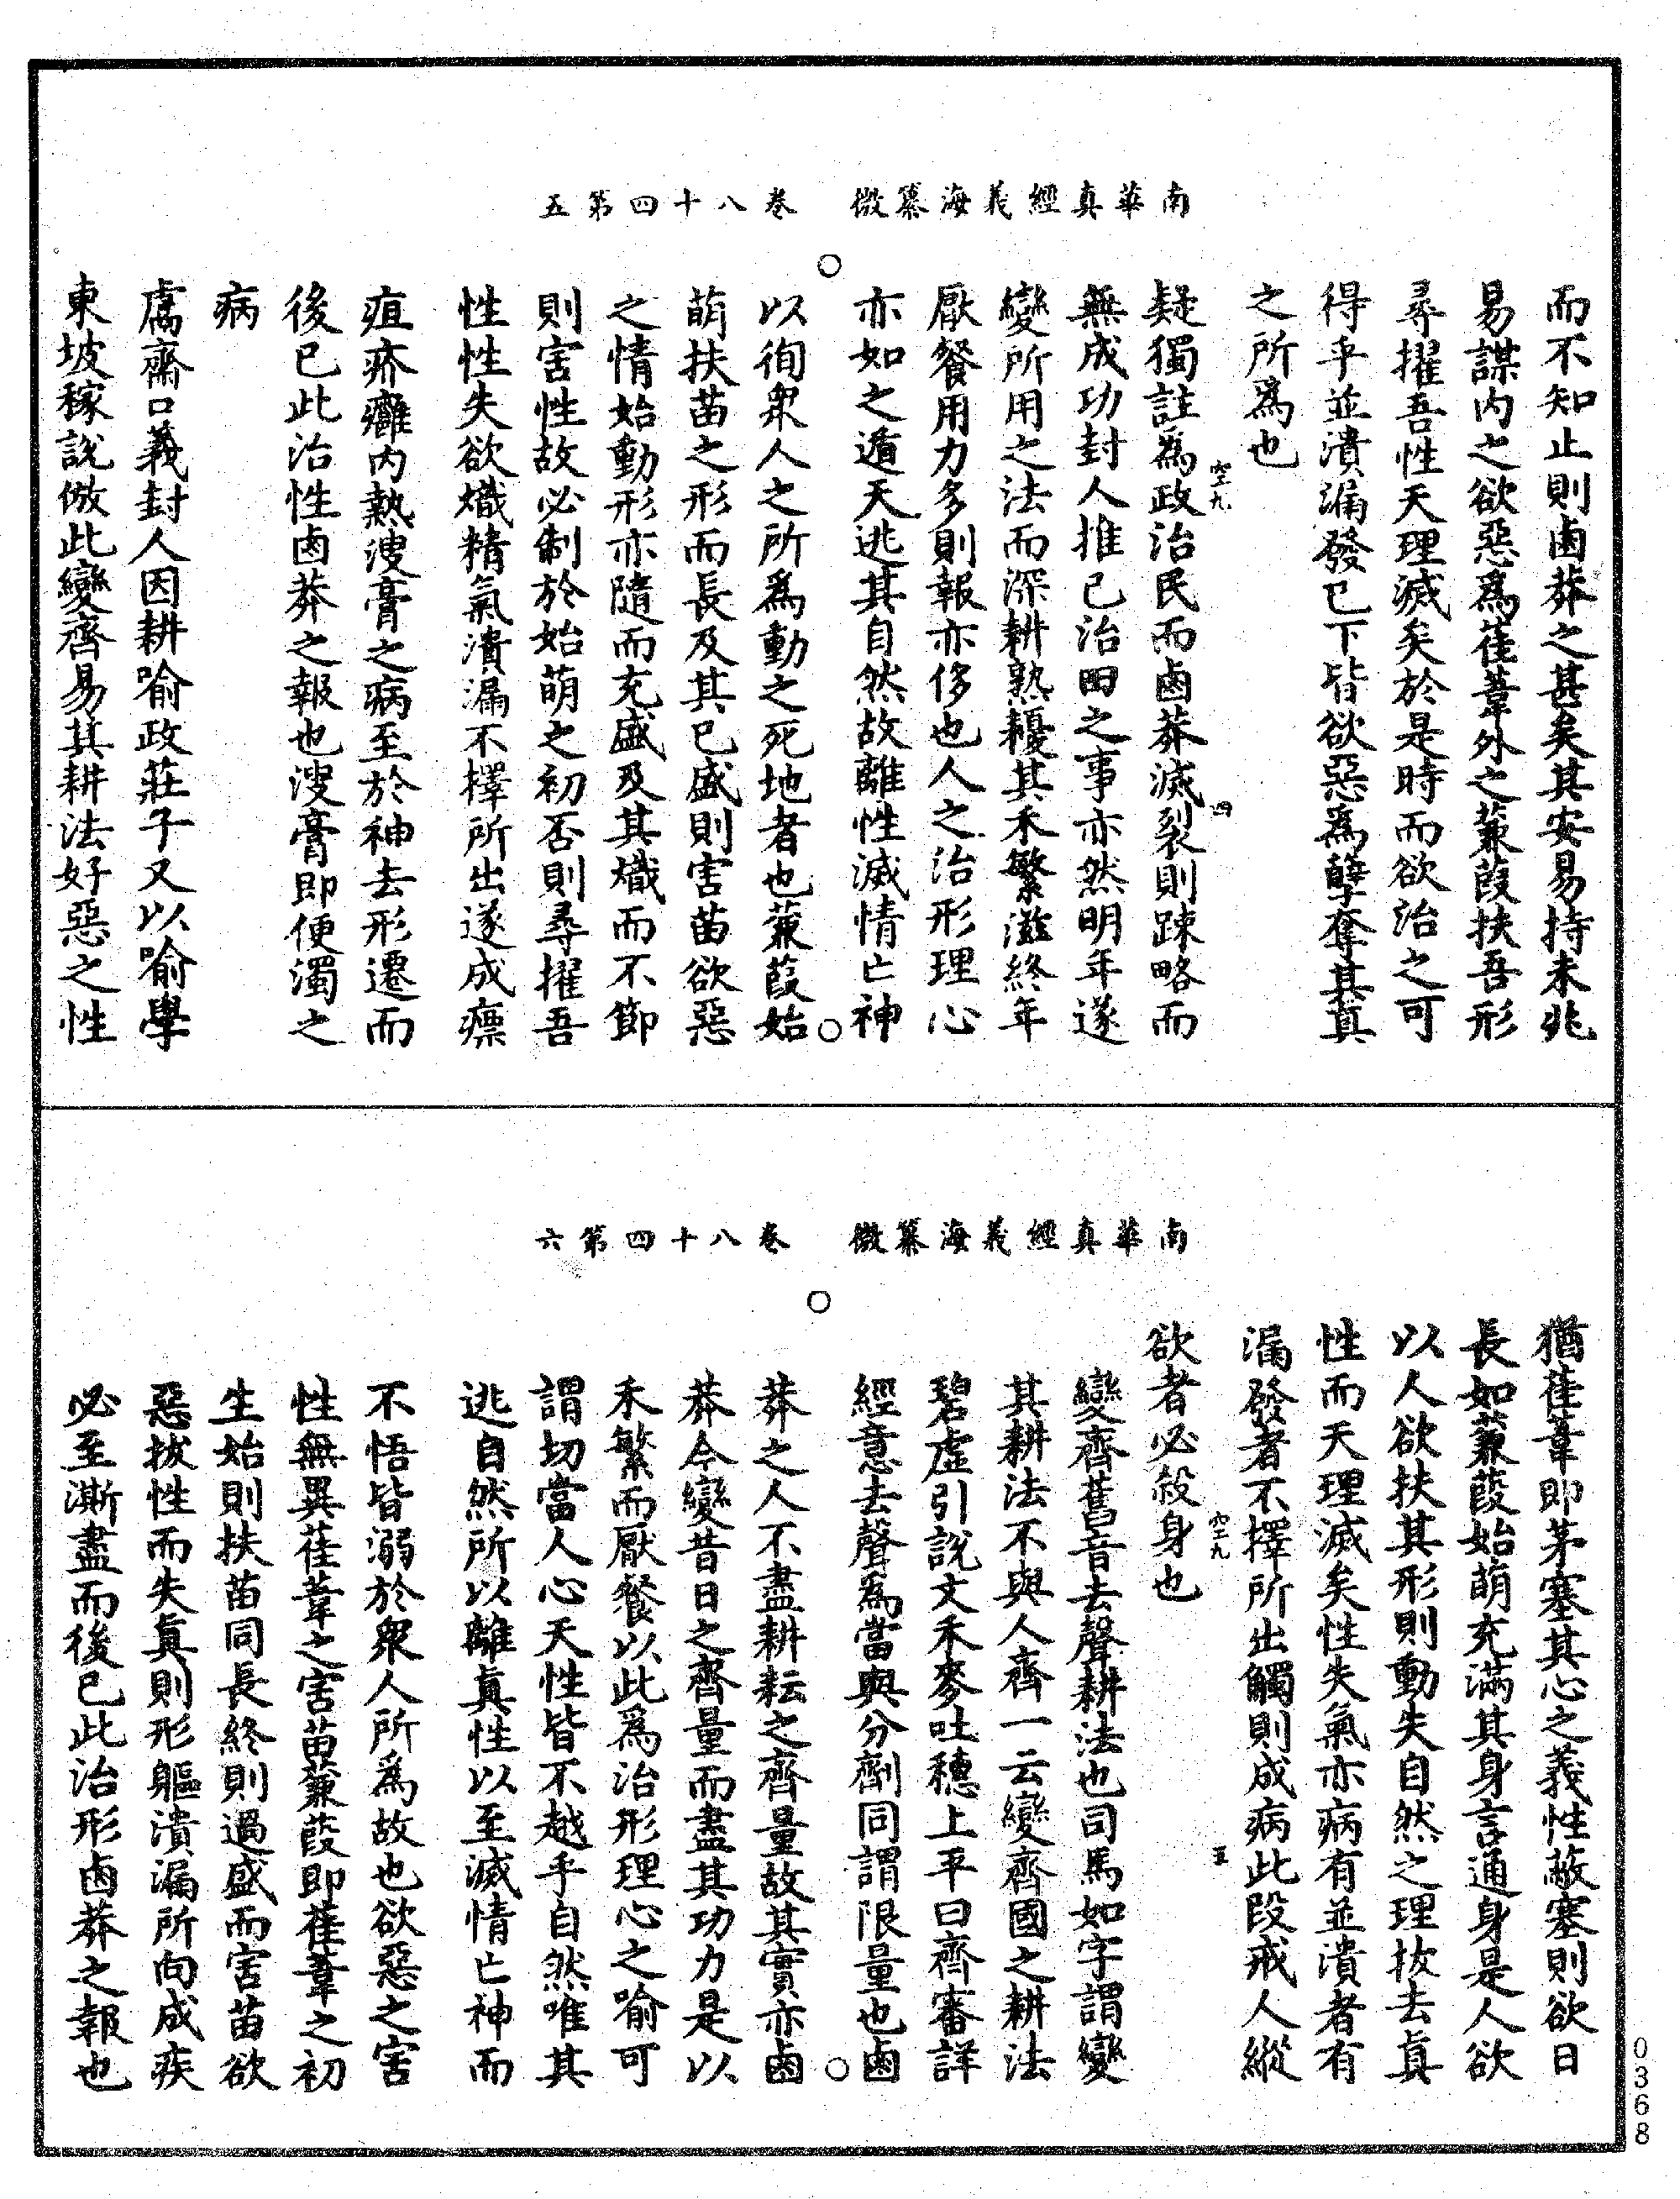 南華真經義海纂微　卷八十四第五
而不知止則鹵莽之甚矣其安易持未兆
易謀內之欲惡爲萑葦外之蒹葭扶吾形
尋擢吾性天理滅矣於是時而欲治之可
得乎並潰漏發已下皆欲惡爲孽奪其真
之所爲也
疑獨註爲政治民而鹵莽滅裂則踈略而
空九
四
無成功封人推已治田之事亦然明年遂
變所用之法而深耕熟耰其禾繁滋終年
厭餐用力多則報亦侈也人之治形理心
亦如之遁天逃其自然故離性滅情亡神
以徇衆人之所爲動之死地者也蒹葭始
萌扶苗之形而長及其已盛則害苗欲惡
之情始動形亦隨而充盛及其熾而不節
則害性故必制於始萌之初否則尋擢吾
性性失欲熾精氣潰漏不擇所出遂成瘭
疽疥癰內熱溲膏之病至於神去形遷而
後已此治性鹵莽之報也溲膏即便濁之
病
鬳齋口義封人因耕喻政莊子又以喻學
東坡稼說倣此變齊易其耕法好惡之性
南華真經義海纂微　卷八十四第六
猶萑葦即茅塞其心之義性蔽塞則欲日
長如蒹葭始萌充滿其身言通身是人欲
以人欲扶其形則動失自然之理拔去真
性而天理滅矣性失氣亦病有並潰者有
漏發者不擇所出觸則成病此段戒人縱
欲者必殺身也
空九
五
變齊舊音去聲耕法也司馬如字謂變
其耕法不與人齊一云變齊國之耕法
碧虛引說文禾麥吐穗上平曰齊審詳
經意去聲爲當與分劑同謂限量也鹵
莽之人不盡耕耘之齊量故其實亦鹵
莽今變昔日之齊量而盡其功力是以
禾繁而厭餐以此爲治形理心之喻可
謂切當人心天性皆不越乎自然唯其
逃自然所以離真性以至滅情亡神而
不悟皆溺於衆人所爲故也欲惡之害
性無異萑葦之害苗蒹葭即萑葦之初
生始則扶苗同長終則過盛而害苗欲
惡拔性而失真則形軀潰漏所向成疾
必至澌盡而後已此治形鹵莽之報也
0368